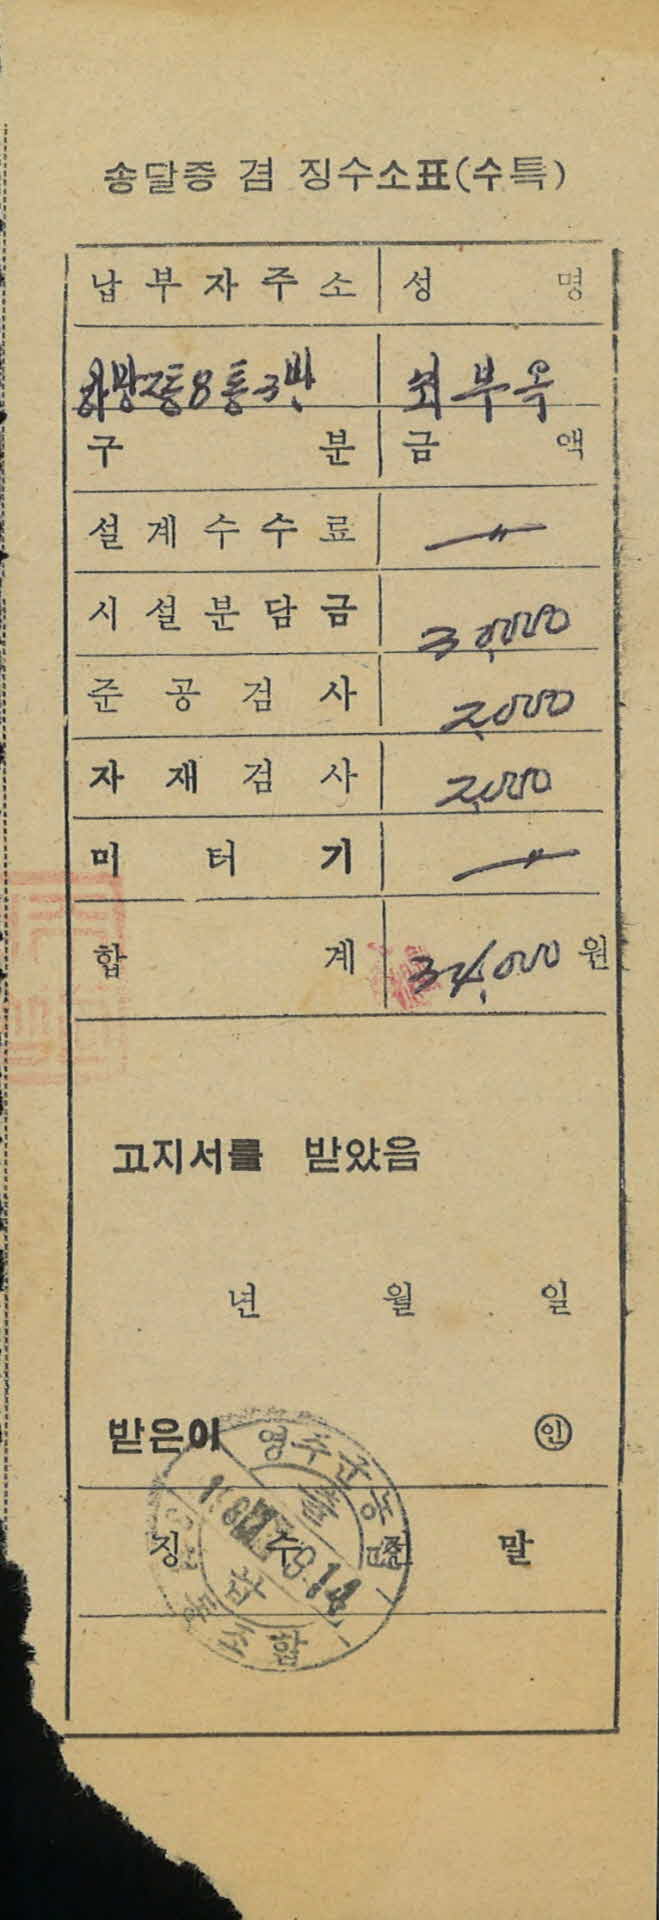 송달증 겸 징수소표(수특)
납부자주소 성 명
하망2동8통3반 최부옥
구 분 금 액
설계수수료 〃
시설분담금 30,000
준공검사 2,000
자재검사 2,000
미터기 〃
합 계 34,000원
고지서를 받았음
년 월 일
받은이 ㊞
영주군농
수납
징 수 말
조합